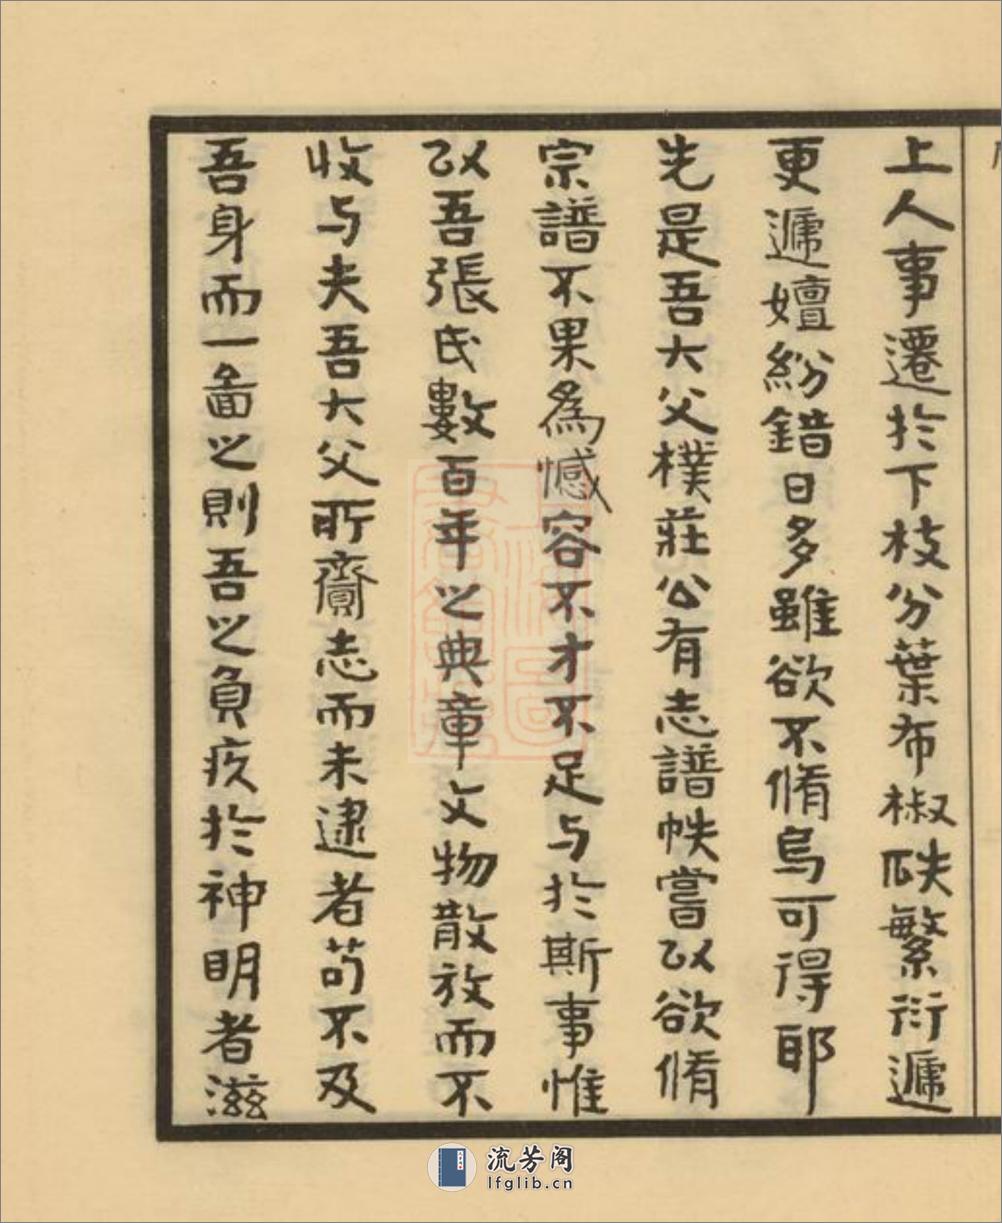 上人事遷於下枝分葉布椒瓞繁衍遞
更遞嬗紛錯日多雖欲不脩烏可得耶
先是吾大父樸莊公有志譜帙嘗以欲脩
宗譜不果為憾容不才不足与於斯事惟
以吾張氏數百年之典章文物散放而不
收与夫吾大父所齎志而未逮者苟不及
吾身而一啚之則吾之負疚於神明者滋
流芳阁
lfglib.cn